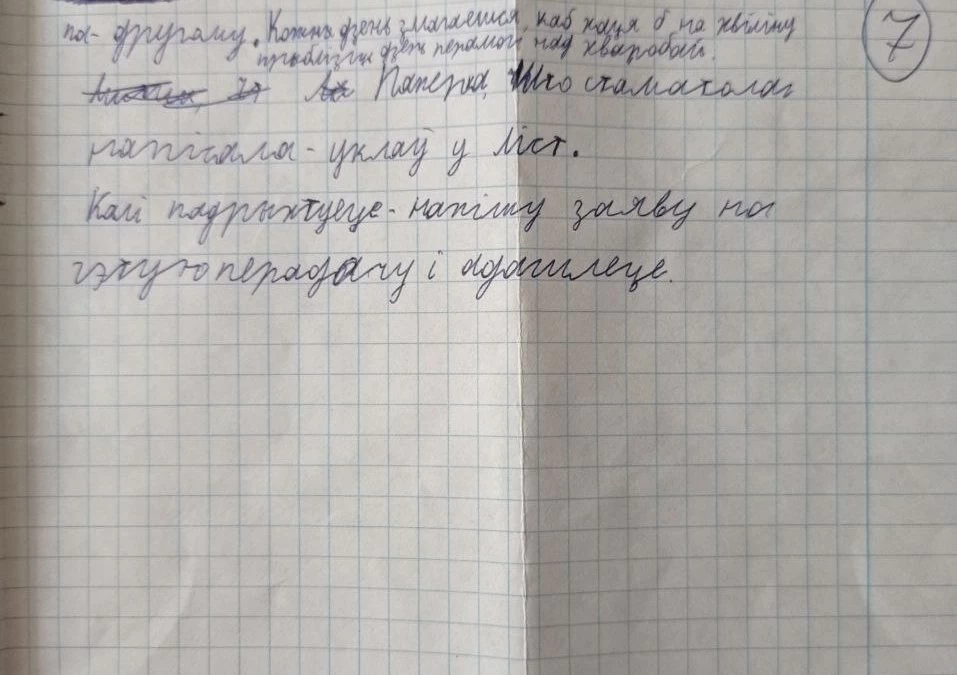 па-другому. Кожны дзень змагаешся, каб хаця б на хвіліну
прыблізіць дзень перамогі над хваробай.
7
Паперка, што стаматолаг
напісала - уклаў у ліст.
Калі падрыхтуеце - напішу заяву на
гэтую перадачу і адашлеце.